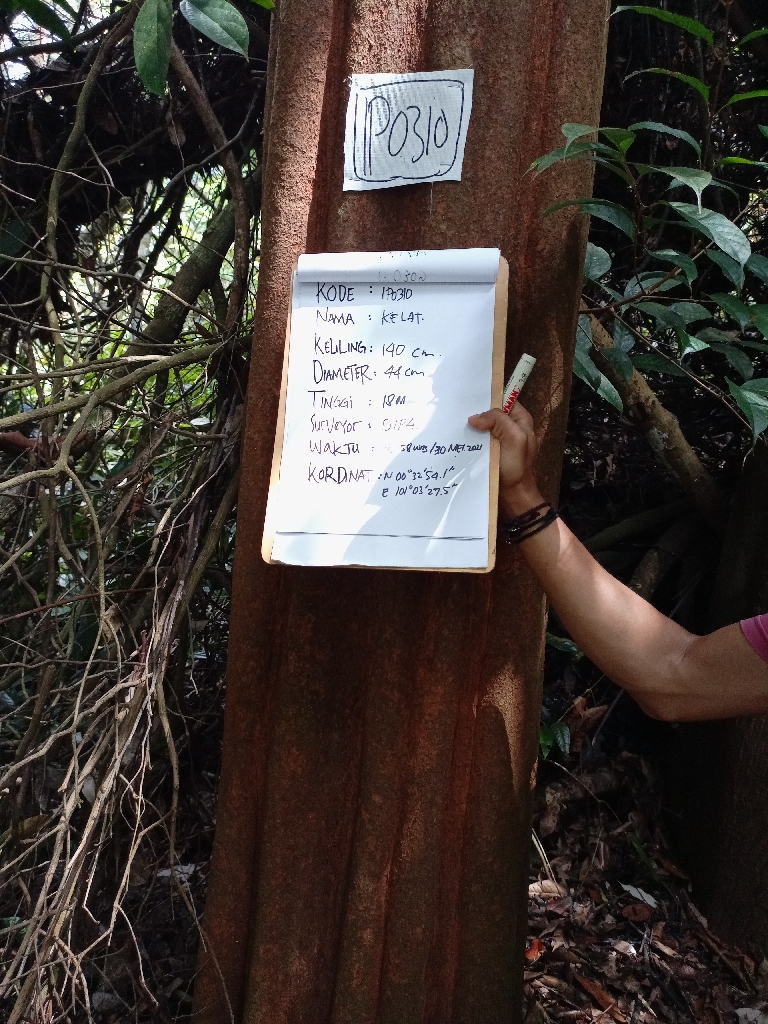 IP0310
KODE : IP0310
NAMA : KELAT.
KELILING : 140 cm.
DIAMETER : 44 cm
TINGGI : 18 M
SURVEYOR :
WAKTU : 58 WIB/30 MEI 2021
KORDINAT : N 00°32'54.1"
E 101°03'27.5"